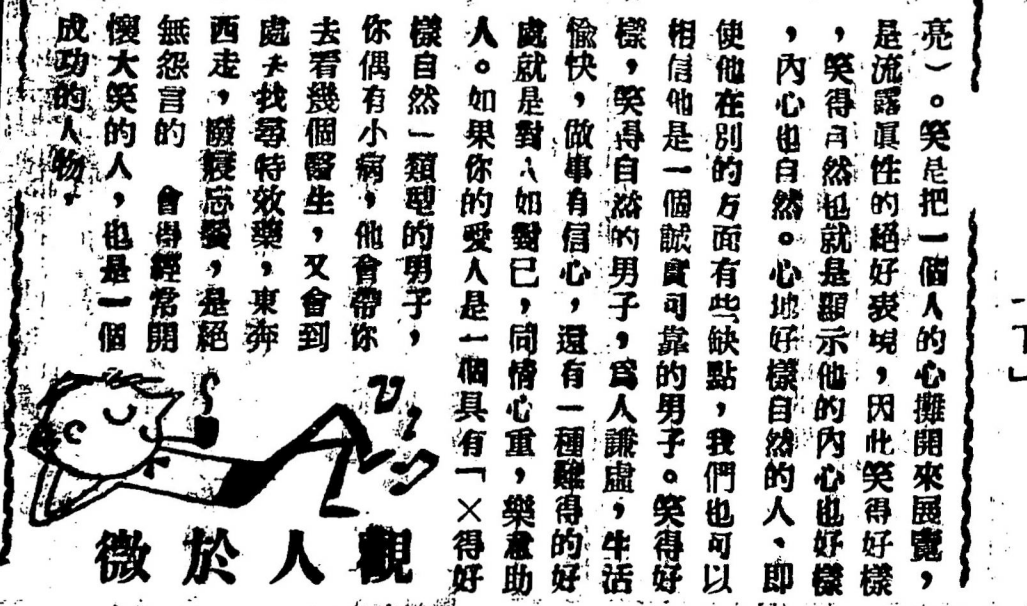 亮）。笑是把一個人的心攤開來展覽，
是流露眞性的絕好表現，因此笑得好樣
，笑得自然也就是顯示他的內心也好樣
，內心也自然。心地好樣自然的人、即
使他在別的方面有些缺點，我們也可以
相信他是一個誠實可靠的男子。笑得好
樣，笑得自然的男子，爲人謙虛，生活
愉快，做事有信心，還有一種難得的好
處就是對人如對己，同情心重，樂意助
人。如果你的愛人是一個具有「×得好
樣自然一類型的男子，
你偶有小病，他會帶你
去看幾個醫生，又會到
處去找尋特效藥，東奔
西走，廢寢忘餐，是絕
無怨言的 會得經常開
懷大笑的人，也是一個
成功的人物，
觀人於微